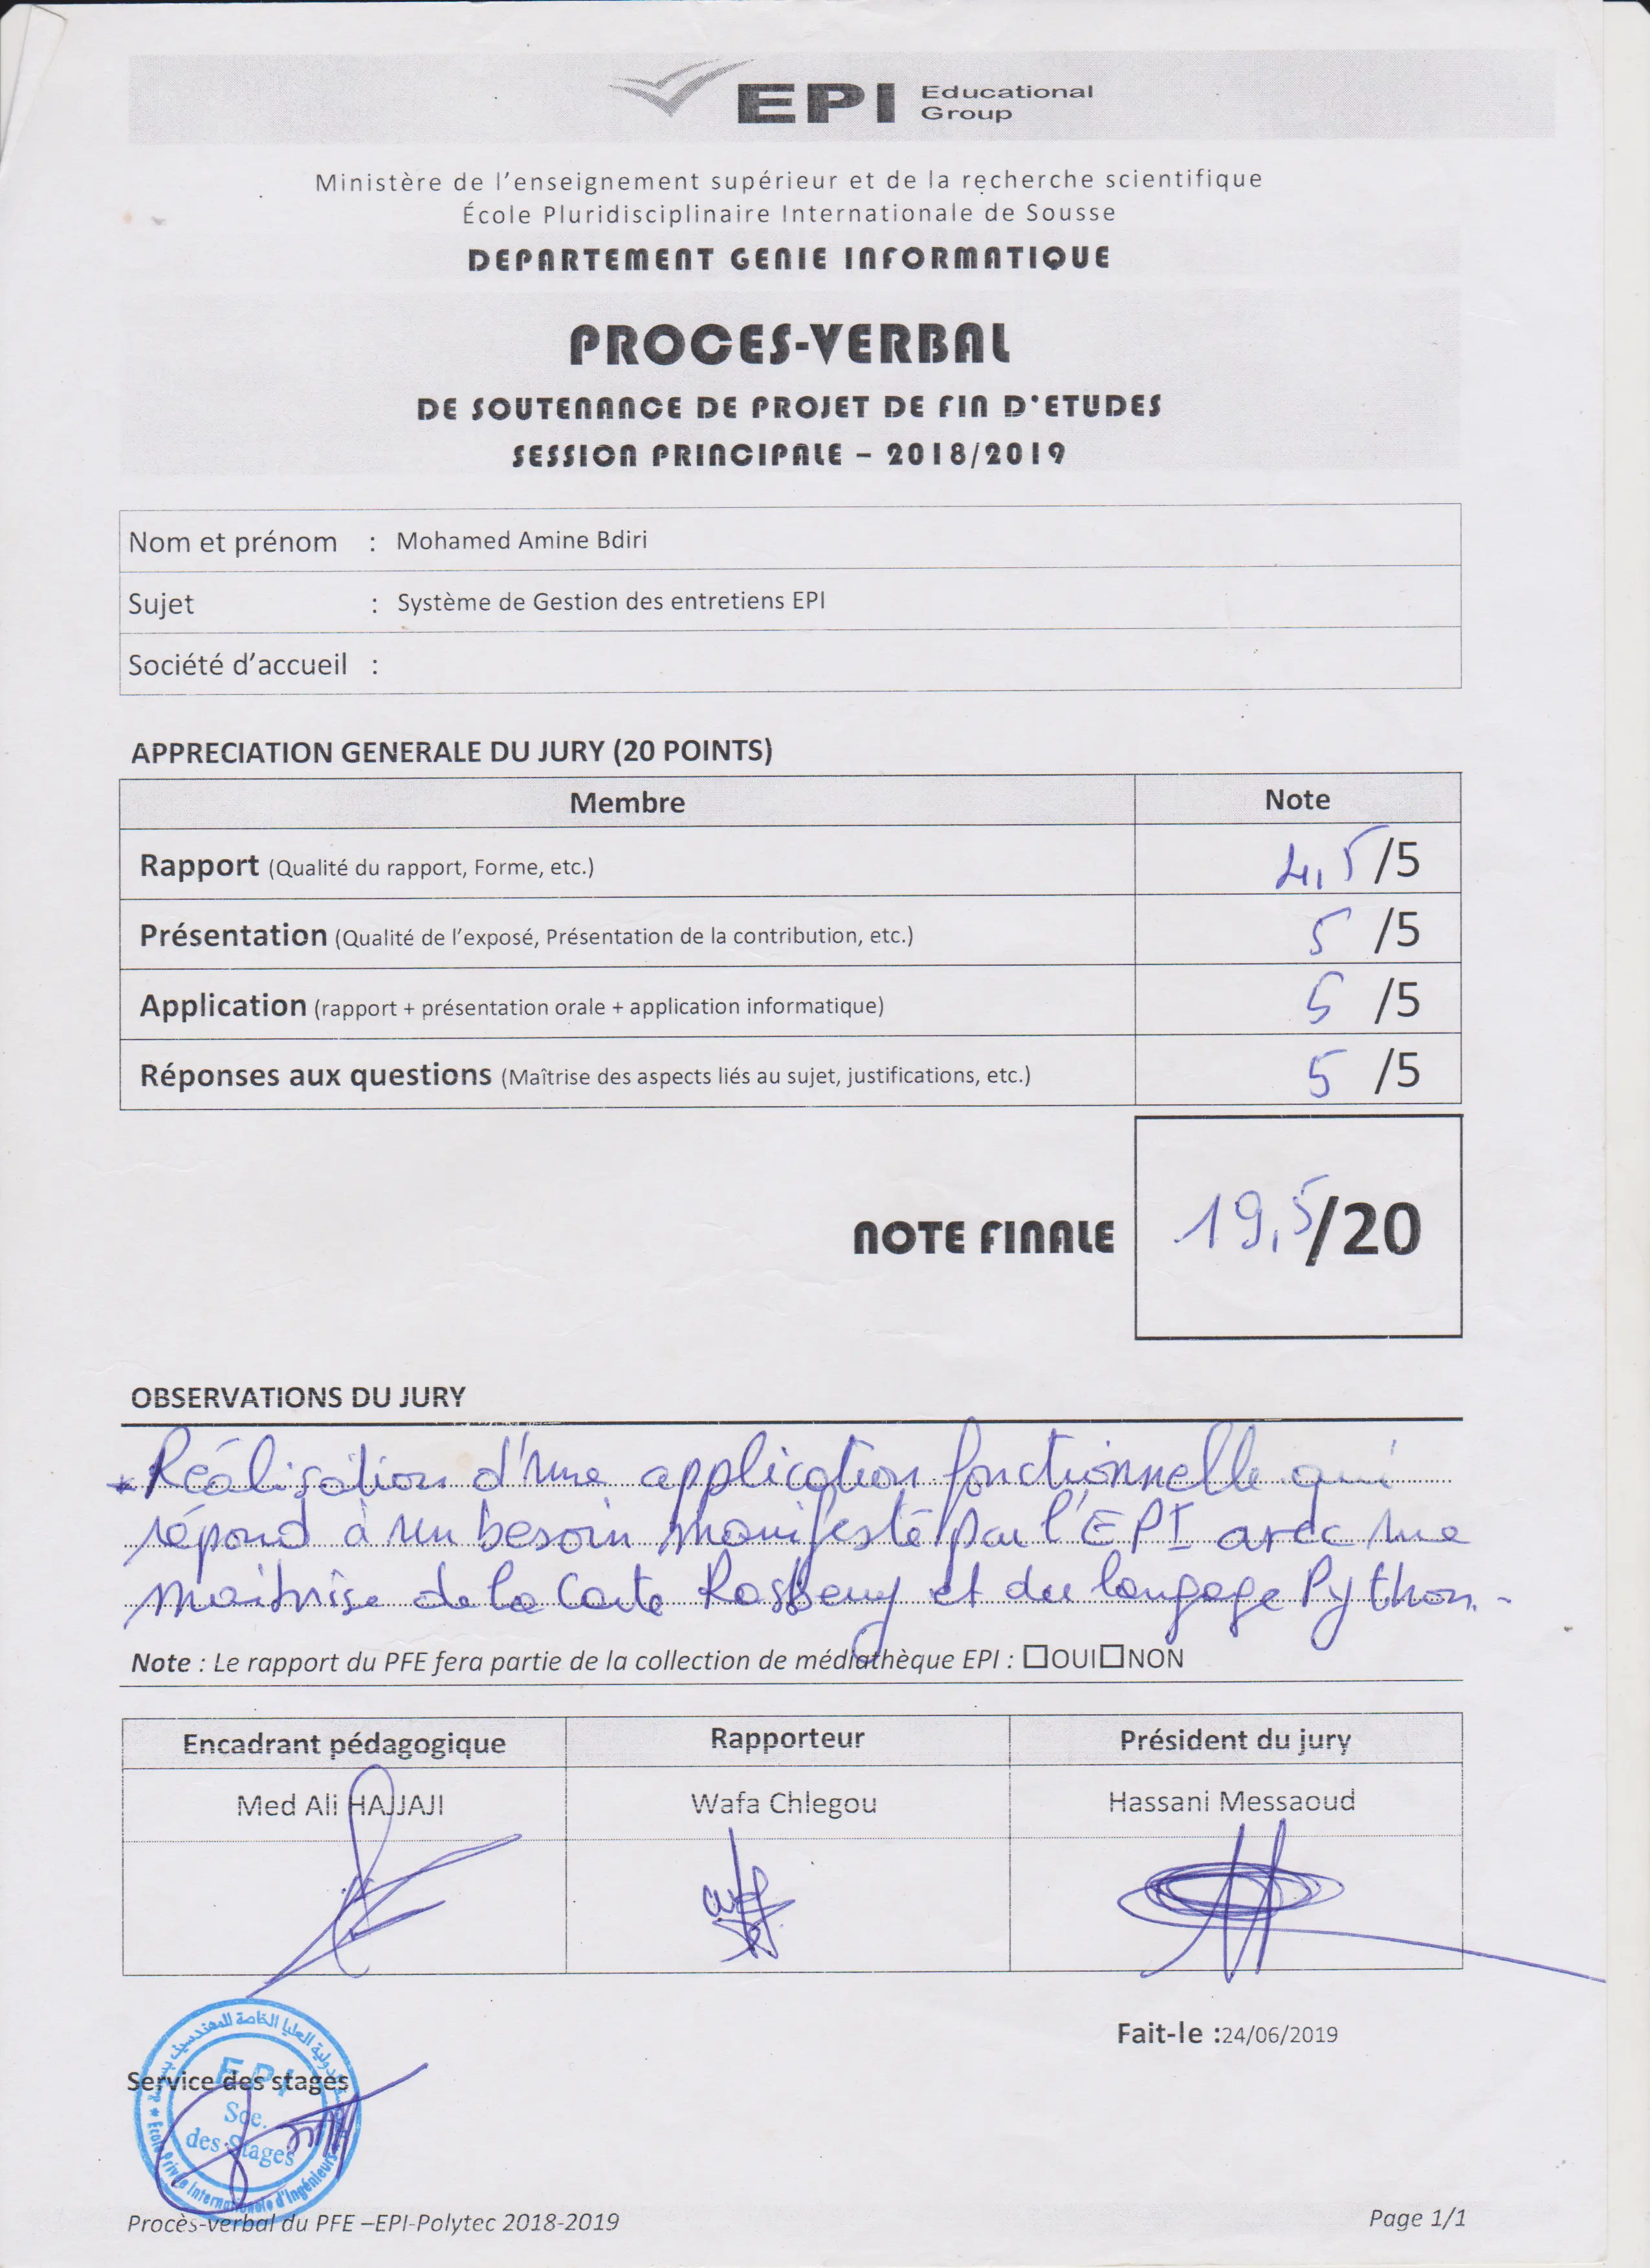 EPI Educational
Group
Ministère de l'enseignement supérieur et de la recherche scientifique
École Pluridisciplinaire Internationale de Sousse
DEPARTEMENT GENIE INFORMATIQUE
PROCES-VERBAL
DE SOUTENANCE DE PROJET DE FIN D'ETUDES
SESSION PRINCIPALE – 2018/2019
Nom et prénom : Mohamed Amine Bdiri
Sujet : Système de Gestion des entretiens EPI
Société d'accueil :
APPRECIATION GENERALE DU JURY (20 POINTS)
Membre Note
Rapport (Qualité du rapport, Forme, etc.) 4,5 /5
Présentation (Qualité de l'exposé, Présentation de la contribution, etc.) 5 /5
Application (rapport + présentation orale + application informatique) 5 /5
Réponses aux questions (Maîtrise des aspects liés au sujet, justifications, etc.) 5 /5
NOTE FINALE 19,5/20
OBSERVATIONS DU JURY
* Réalisation d'une application fonctionnelle qui
répond à un besoin manifesté par l'EPI avec une
maitrise de la carte Rasberry et du langage Python.
Note : Le rapport du PFE fera partie de la collection de médiathèque EPI : ☐OUI☐NON
Encadrant pédagogique Rapporteur Président du jury
Med Ali HAJJAJI Wafa Chlegou Hassani Messaoud
Fait-le :24/06/2019
Service des stages
EPI
Sce.
des Stages
Ecole Privée Internationale d'Ingénieurs
Procès-verbal du PFE –EPI-Polytec 2018-2019 Page 1/1